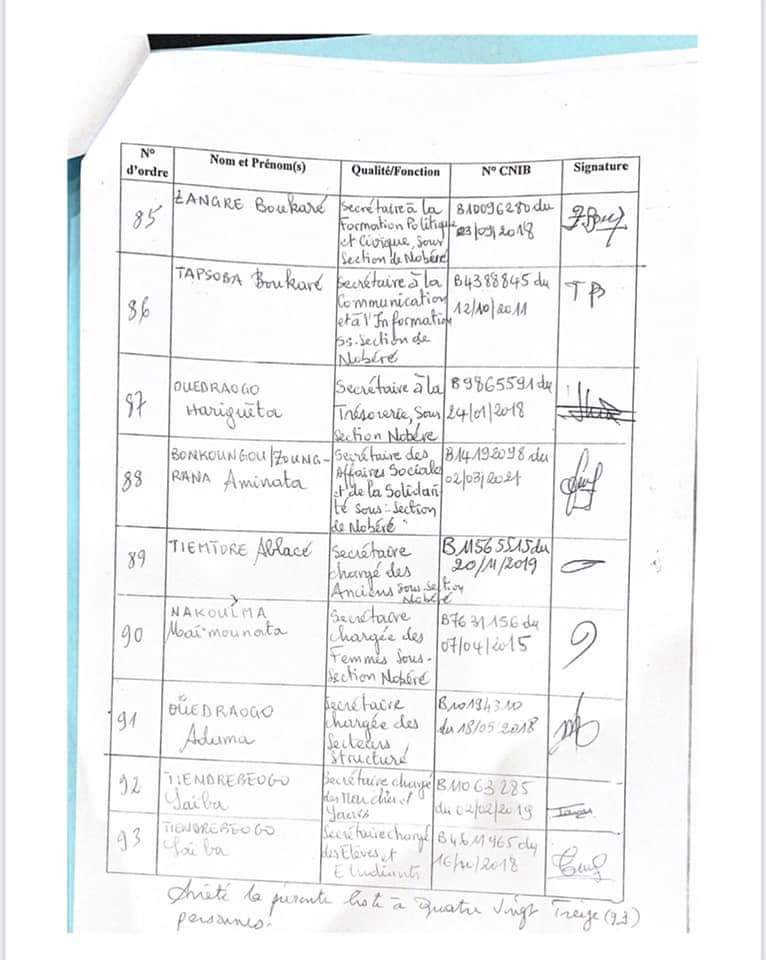 N° d'ordre
Nom et Prénom(s)
Qualité/Fonction
N° CNIB
Signature
85
ZANGRE Boukaré
Secrétaire à la
Formation Politique
et Civique, Sous
Section de Nobéré
B10096280 du
03/09/2018
86
TAPSOBA Boukaré
Secrétaire à la
Communication
et à l'Information
ss-section de
Nobéré
B4388845 du
12/10/2011
TB
87
OUEDRAOGO
Harigueta
Secrétaire à la
Trésorerie, Sous
Section Nobéré
B9865591 du
24/01/2018
88
BONKOUNGOU/ZOUNG-
RANA Aminata
Secrétaire des
Affaires Sociales
et de la Solidari
té sous-section
de Nobéré
B14192098 du
02/03/2021
89
TIEMTORE Ablacé
Secrétaire
chargé des
Anciens sous section
Nobéré
B11565515 du
20/11/2019
90
NAKOULMA
Maï-mounata
Secrétaire
chargée des
Femmes Sous-
section Nobéré
B7631156 du
07/04/2015
91
OUEDRAOGO
Adama
Secrétaire
chargée des
Secteurs
Structuré
B10194310
du 18/05/2018
92
TIENDREBEOGO
Saïba
Secrétaire chargé
des Marchés et
Yaars
B11063285
du 02/02/2019
93
TIENDREBEOGO
Saïba
Secrétaire chargé
des Elèves et
Etudiants
B4611965 du
2018
Arrêté la présente liste à Quatre Vingt Treize (93)
personnes.